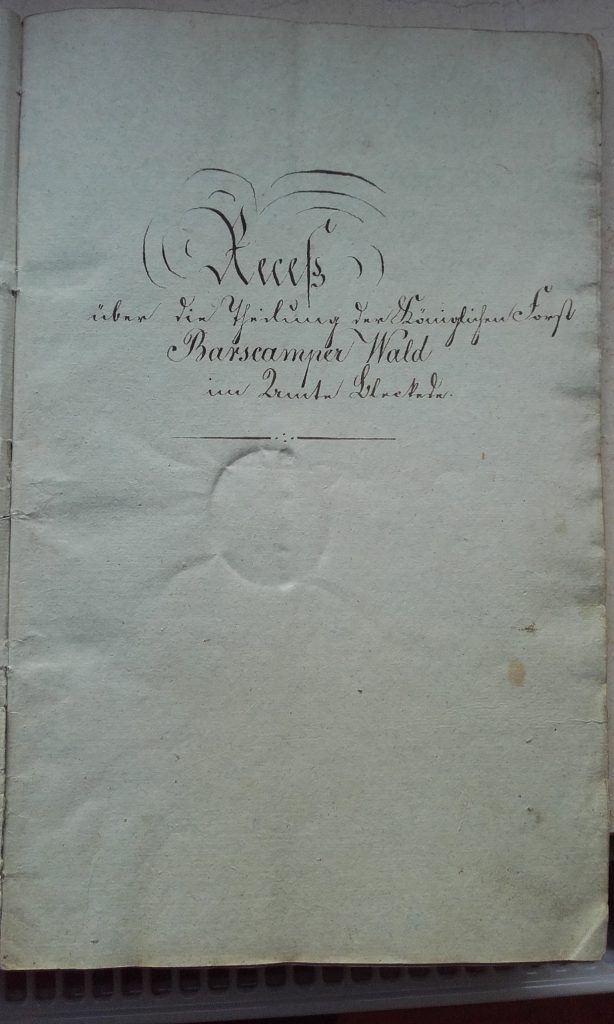 Receß
über die Theilung der Königlichen Forst
Barscamper Wald
im Amte Bleckede.